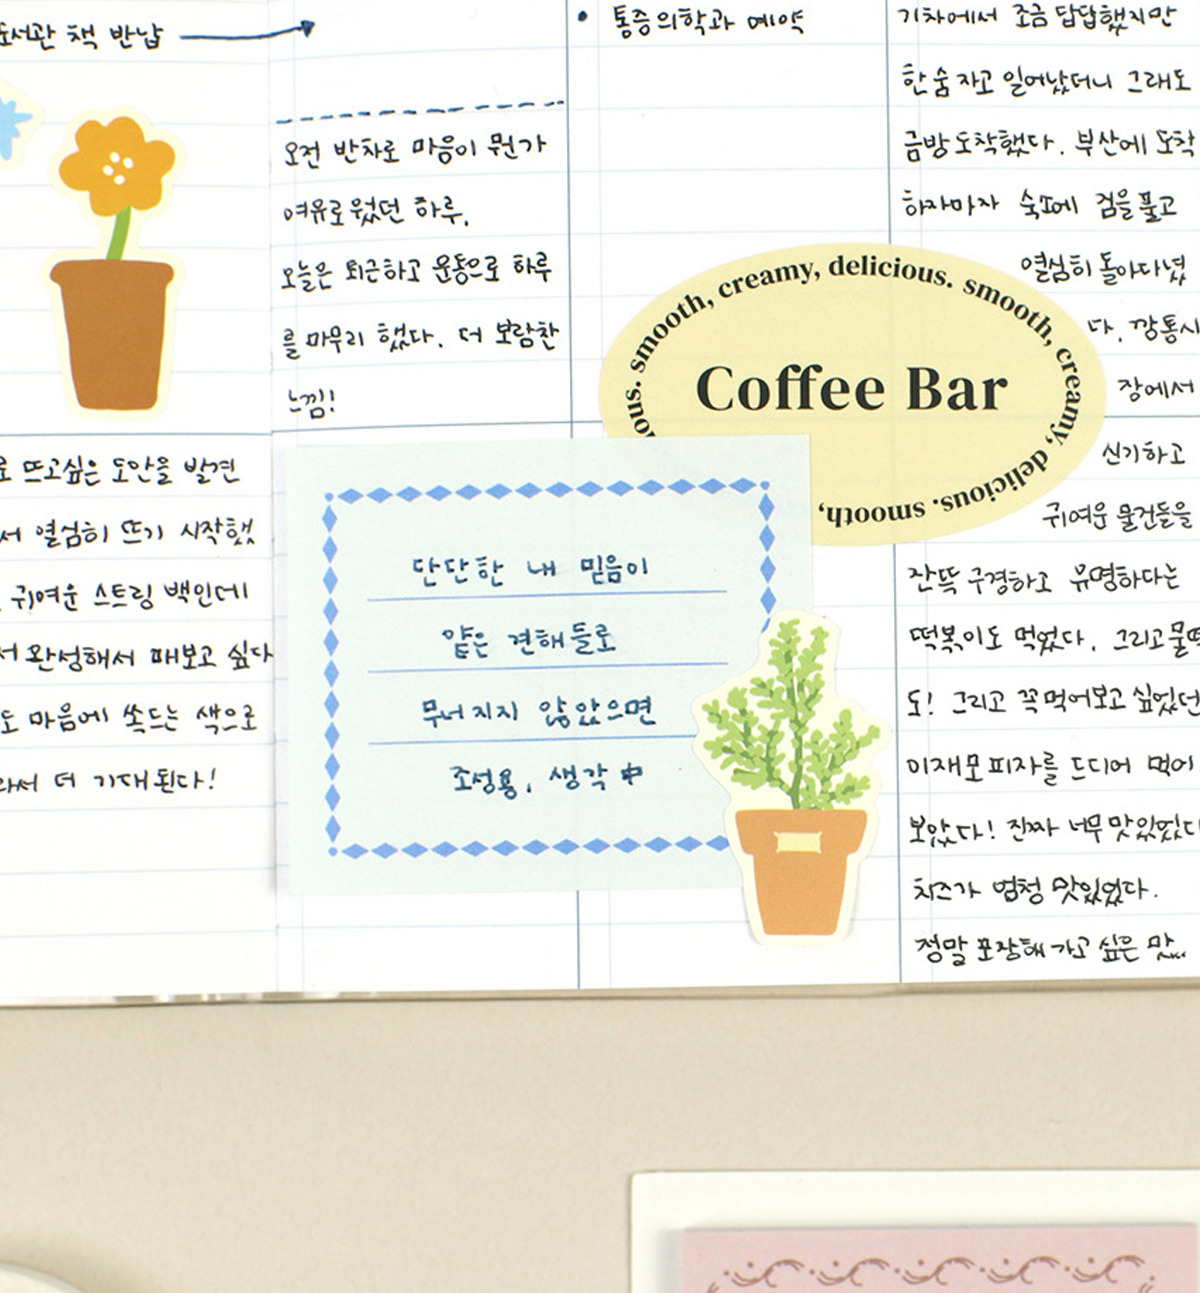 도서관 책 반납
오전 반차로 마음이 뭔가
여유로웠던 하루.
오늘은 퇴근하고 운동으로 하루
를 마무리 했다. 더 보람찬
느낌!
로 뜨고싶은 도안을 발견
서 열심히 뜨기 시작했
귀여운 스트링 백인데
서 완성해서 매보고 싶다
도 마음에 쏙드는 색으로
라서 더 기대된다!
단단한 내 믿음이
얕은 견해들로
무너지지 않았으면
조성용, 생각 中
• 통증의학과 예약
Coffee Bar
smooth, creamy, delicious. smooth, creamy, delicious. smooth, smooth,
기차에서 조금 답답했지만
한숨 자고 일어났더니 그래도
금방 도착했다. 부산에 도착
하자마자 숙소에 짐을 풀고
열심히 돌아다녔
다. 깡통시
장에서
신기하고
귀여운 물건들을
잔뜩 구경하고 유명하다는
떡볶이도 먹었다. 그리고 물떡
도! 그리고 꼭 먹어보고 싶었던
이재모 피자를 드디어 먹어
보았다! 진짜 너무 맛있었다
치즈가 엄청 맛있었다.
정말 포장해 가고 싶은 맛...